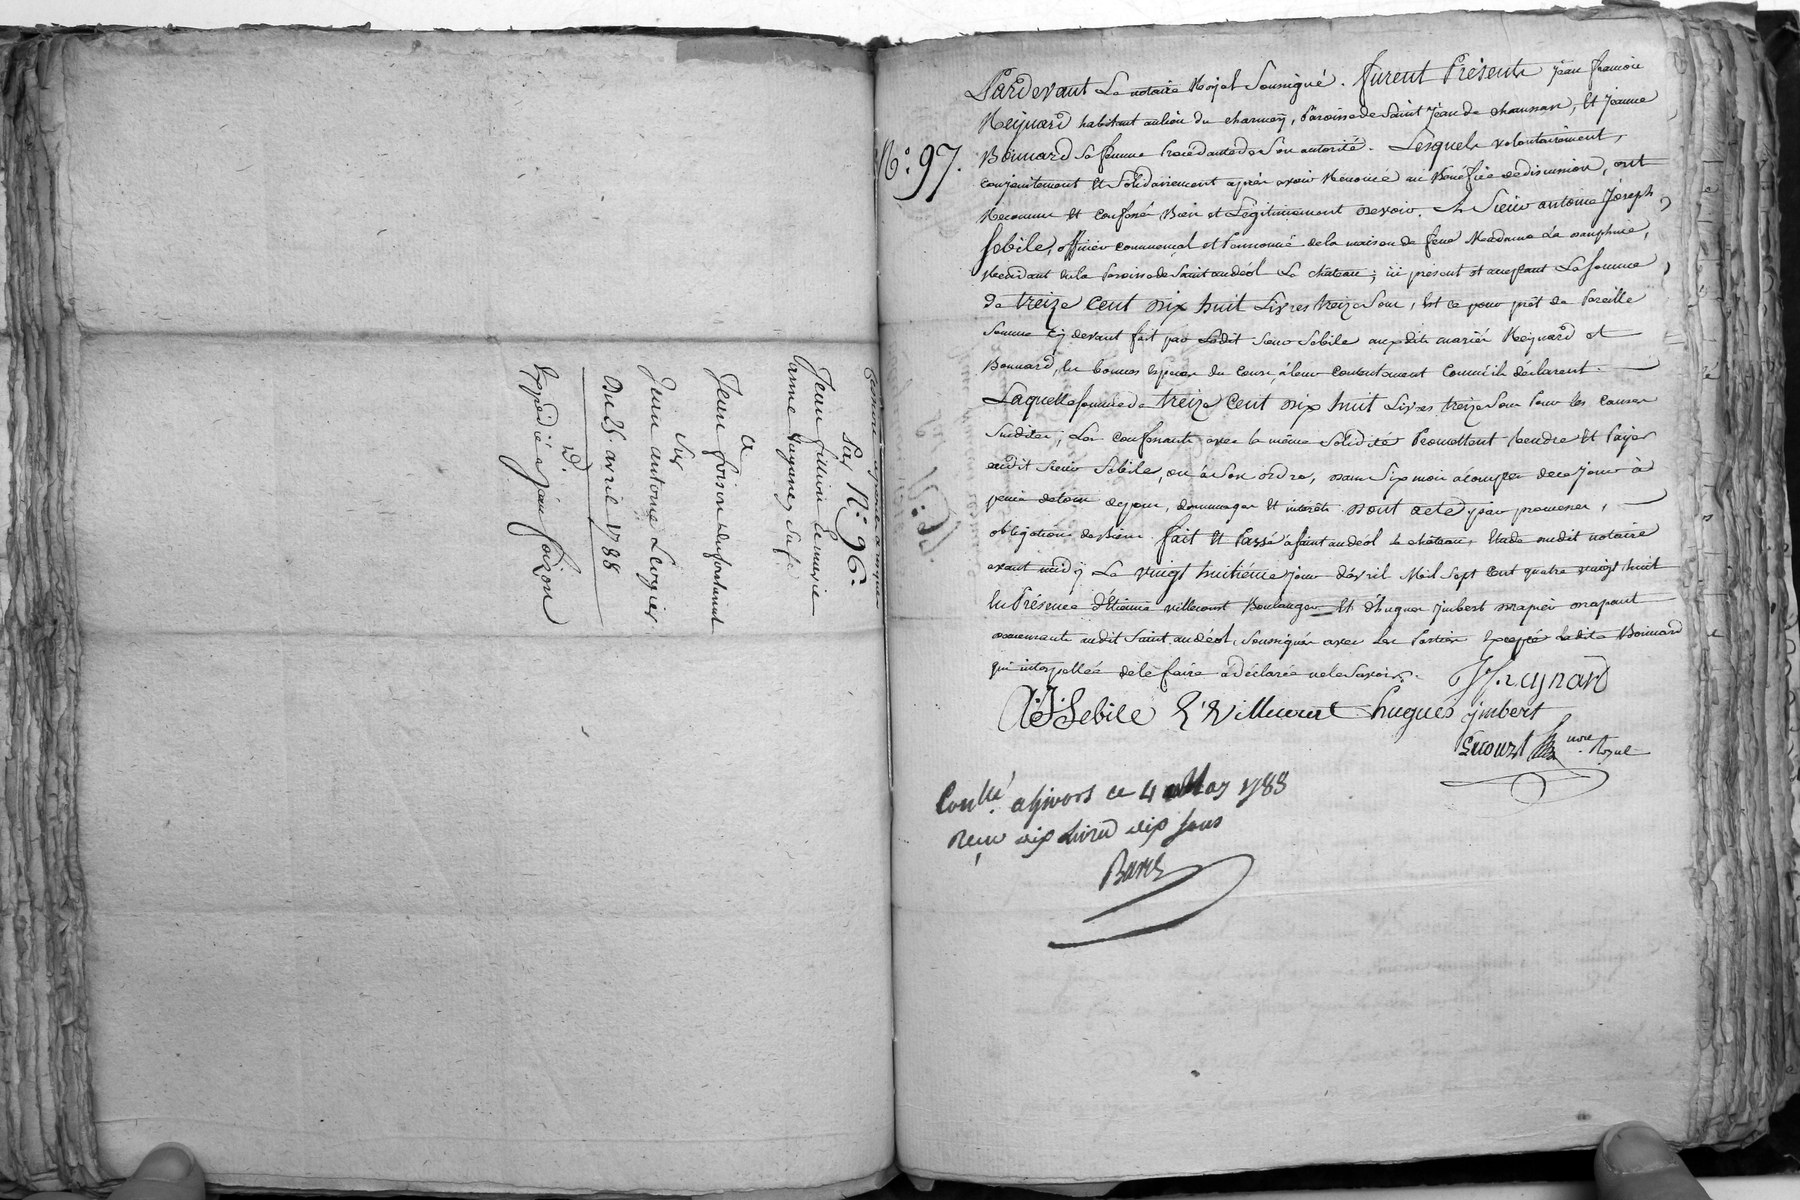 Sur N.° 96.
Jean Gillion
anne
a
Jean foison
Sur
Jean antoine Leogier
Du 25 avril 1788
Expédiée a jean foizon
N.° 97.
Pardevant Le notaire Royal Soussigné. furent Présents jean françois
Reynard habitant au lieu du charmey, Paroisse de Saint Jean de chaussan, Et jeanne
Bonnard Sa femme Procédante de Son autorité. Lesquels volontairement,
conjointement Et Solidairement après avoir Rénoncé au Bénéfice de discussion, ont
Reconnu Et confessé Bien et Légitimement devoir. A Sieur antoine Joseph
Sebile, officier commensal et Pensionné de la maison de feue Madame La dauphine,
Residant en la Paroisse de Saint andéol Le château; ici présent et acceptant La somme
de treize cent dix huit Livres treize Sous, Et ce pour prêt de Pareille
somme Cy devant fait par Ledit Sieur Sebile auxdits mariés Reynard et
Bonnard, En bonnes Espèces du Cours, à leur contentement Comme ils déclarent.
Laquelle somme de treize cent dix huit Livres treize Sous Pour les causes
Susdites, Les confessants avec la même Solidité Promettent Rendre Et Payer
audit Sieur Sebile, ou à Son ordre, dans Six mois à compter de ce jour à
peine de tous dépens, dommages Et intérêts. dont acte, par promesses,
obligation de Biens. fait Et Passé à Saint andéol le château, Etude dudit notaire
avant midy Le vingt huitiéme jour d'avril Mil Sept Cent quatre vingt huit
En Présence d'Etienne villecourt Boulanger Et d'hugues jmbert drapier drapant
demeurants audit Saint andéol, Soussignés avec Les Parties Excepté Ladite Bonnard
qui interpellée de le faire a Déclarée ne le Savoir.
JF Reynard
A: J: Sebile E. Villecourt hugues jmbert
nore. Royal
Conllé. a Givors ce 4 May 1788
Reçu dix Livres dix sous